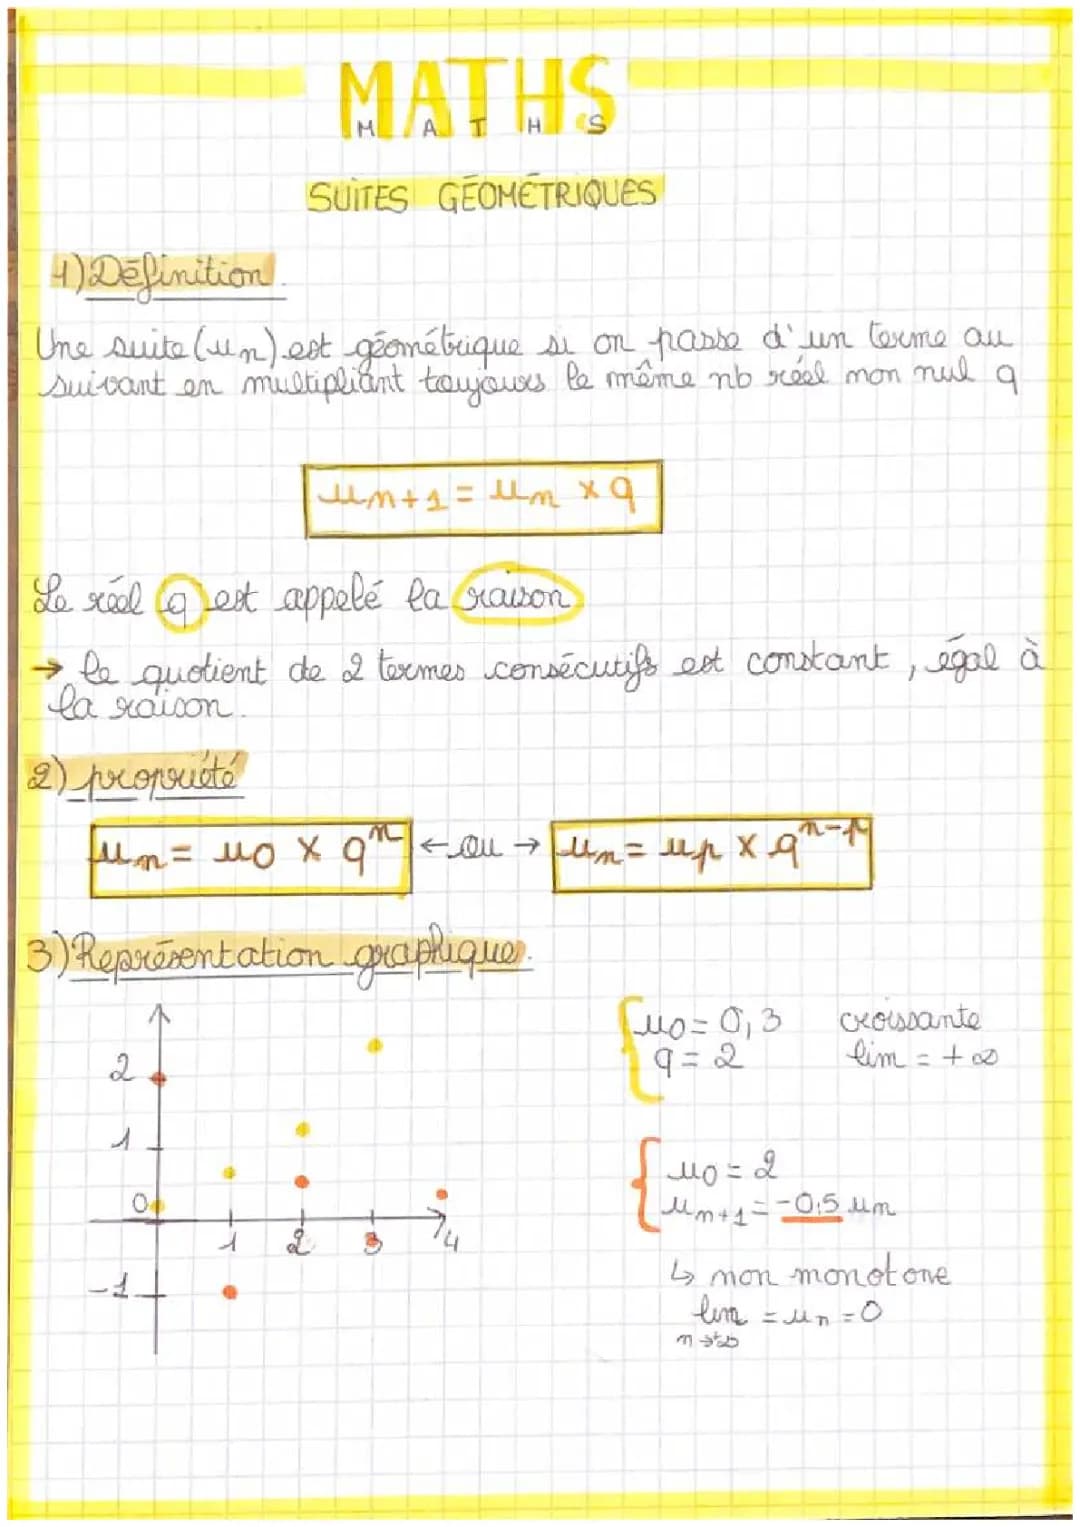 MATHS
M A T H S
SUITES GÉOMÉTRIQUES
1) Définition.
Une suite (un) est géométrique si on passe d'un terme au
suivant en multipliant toujours le même nb réel non nul q
un+1 = un × q
Le réel q est appelé la raison
→ le quotient de 2 termes consécutifs est constant, égal à
la raison.
2) propriété
un = u0 × qⁿ ← ou → un = up × qⁿ⁻ᵖ
3) Représentation graphique.
u0 = 0,3 croissante
q = 2 lim = +∞
2
1
0
1 2 3 4
-1
u0 = 2
un+1 = -0,5 un
↳ non monotone
lim = un = 0
n→+∞